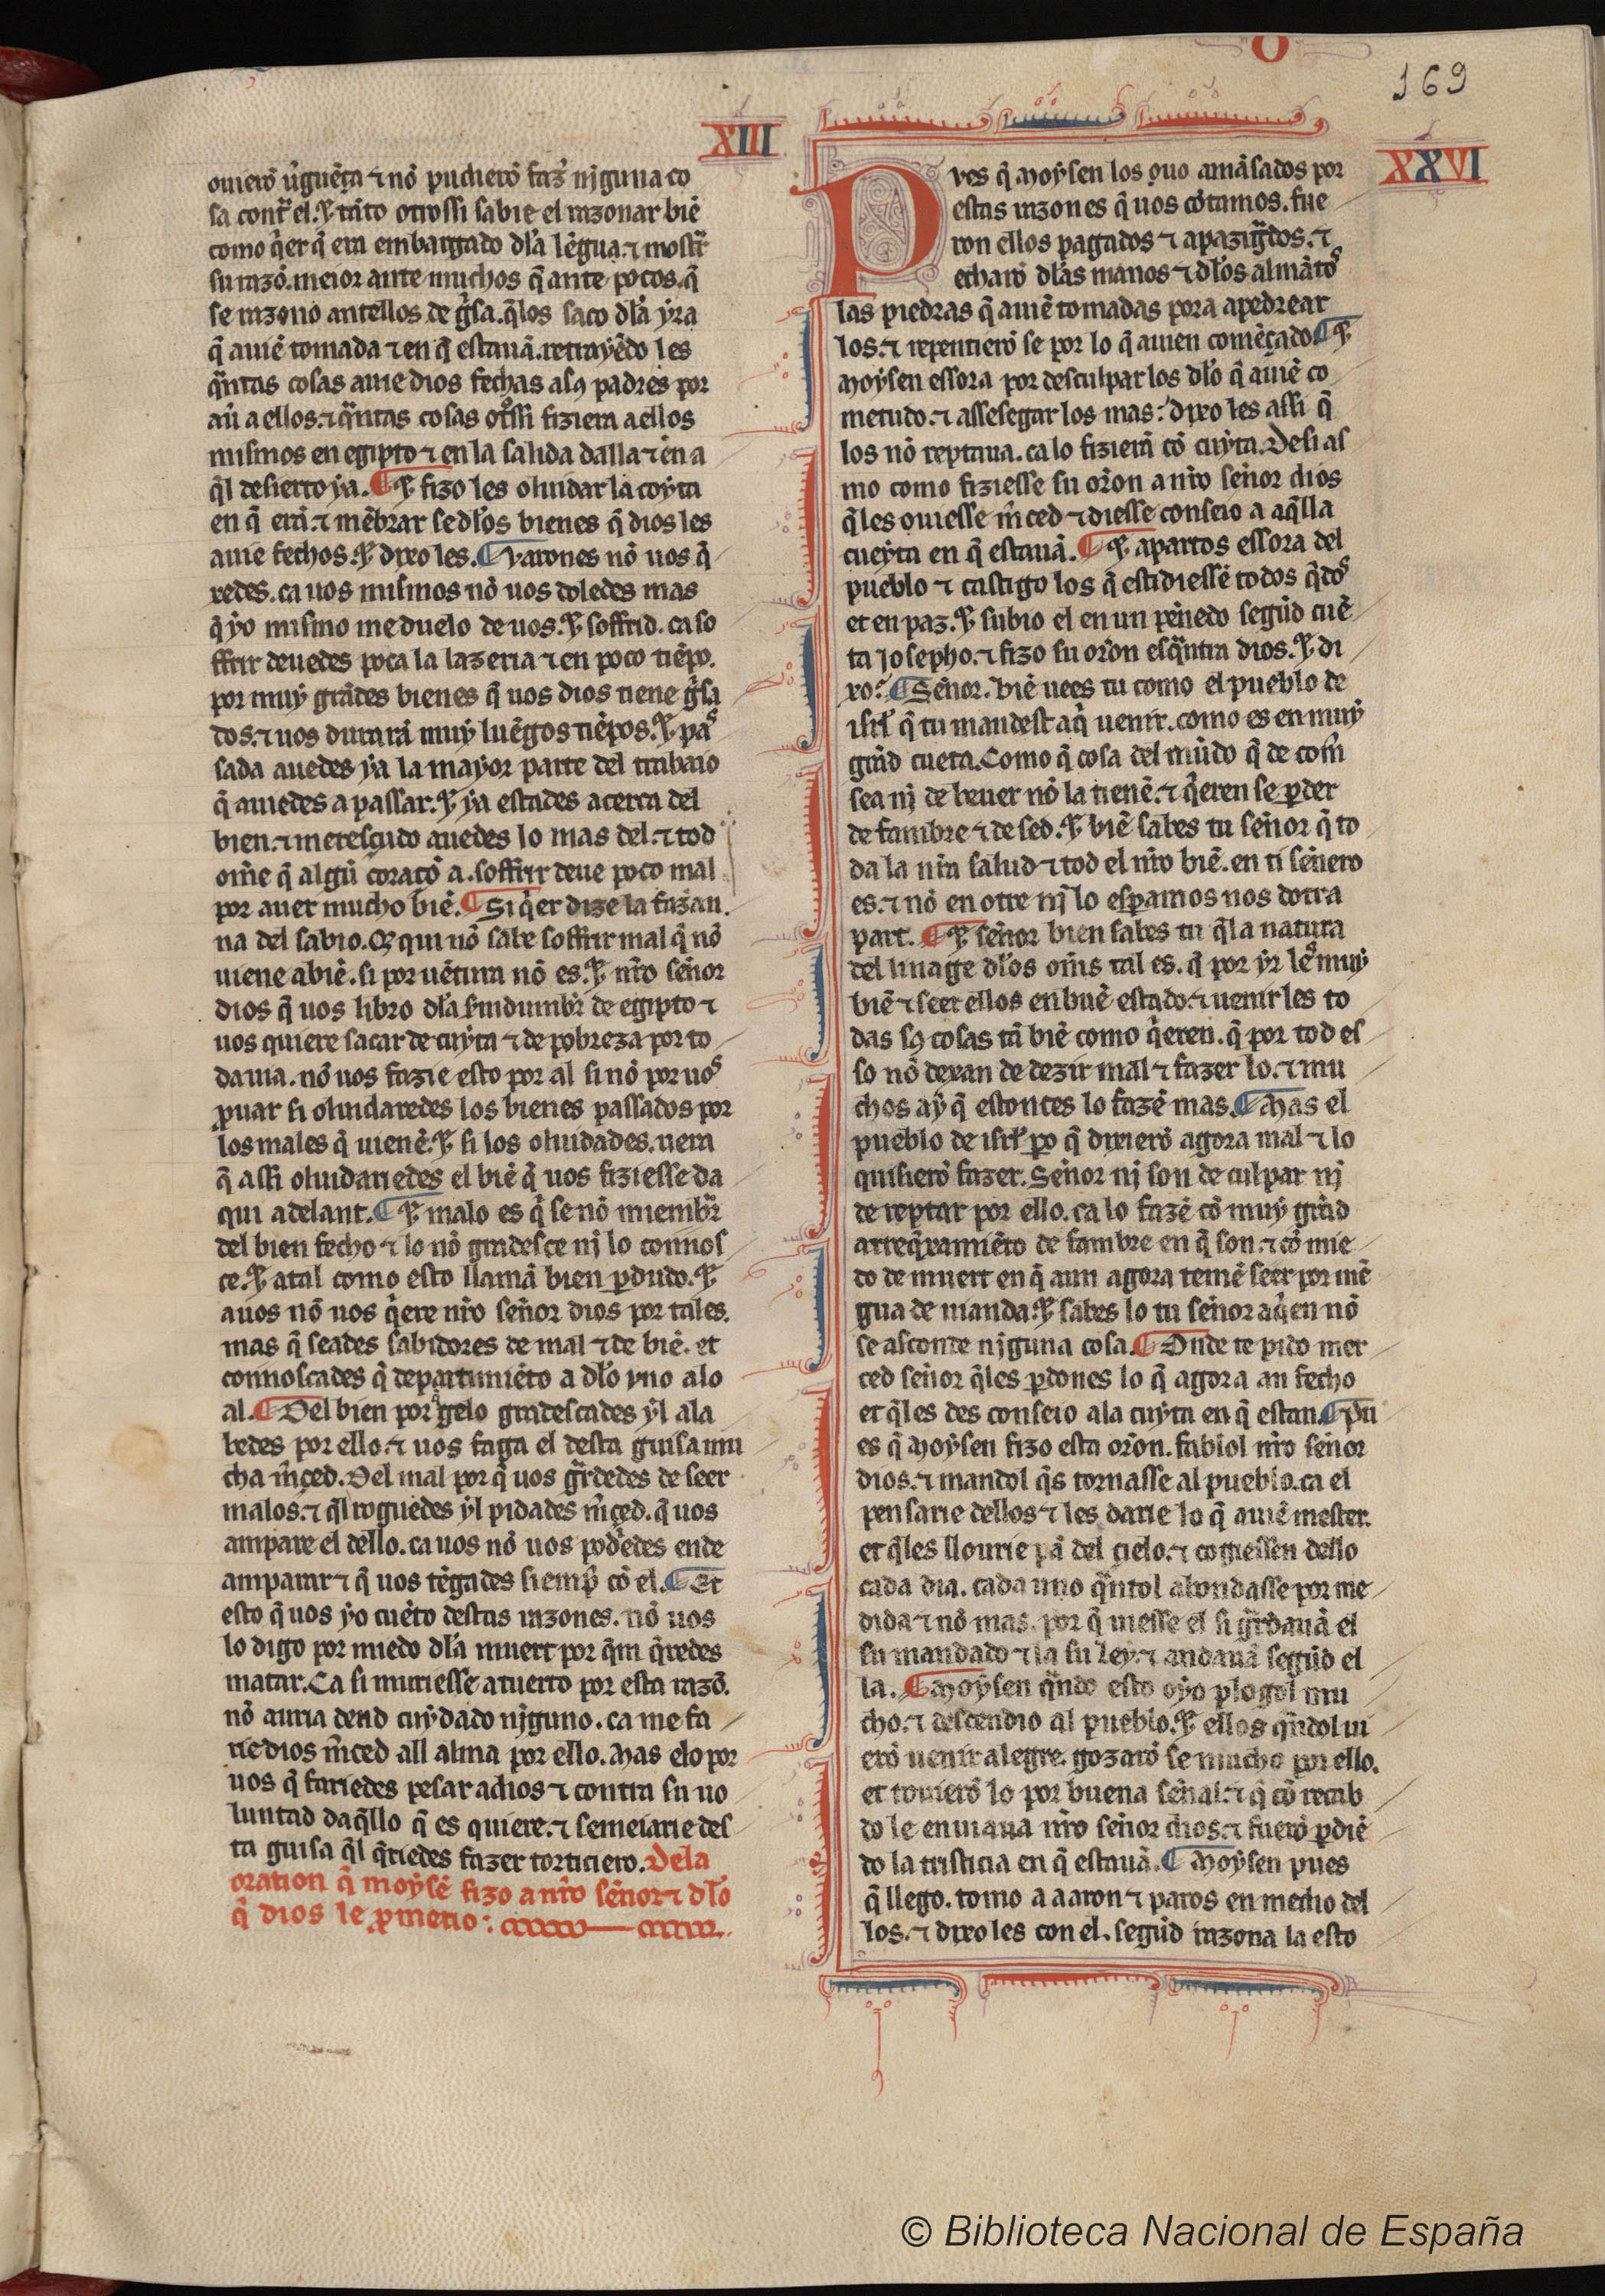 O
169
XIII
ouierõ ũguẽça ⁊ nõ pudierõ faz̃ nj̃guna co
sa cont̃ el. ⁊ tãto otrossi sabie el razonar biẽ
como q̃er q̃ era embargado dl̃a lẽgua. ⁊ mostrã
su razõ. meior ante muchos q̃ ante pocos. q̃
se razono antellos de g̃sa. q̃ los saco dl̃a yra
q̃ auiẽ tomada ⁊ en q̃ estauã. retrayẽdo les
q̃ntas cosas auie dios fechas a sꝯ padres por
aũ a ellos. ⁊ q̃ntas cosas otssi fiziera a ellos
mismos en egipto ⁊ en la salida dalla ⁊ en a
q̃l desierto ya. ¶ ⁊ fizo les oluidar la coyta
en q̃ erã. ⁊ mẽbrar se dl̃os bienes q̃ dios les
auie fechos. ⁊ dixo les. ¶ Varones nõ uos q̃
xedes. ca uos mismos nõ uos doledes mas
q̃ yo mismo me duelo de uos. ⁊ soffrid. ca so
ffrir deuedes poca la lazeria ⁊ en poco tiẽpo.
por muy grãdes bienes q̃ uos dios tiene g̃sa
dos. ⁊ uos durarã muy luẽgos tiẽpos. ⁊ pas
sada auedes ya la mayor parte del trabaio
q̃ auiedes a passar. ⁊ ya estades acerca del
bien. ⁊ meresçudo auedes lo mas del. ⁊ tod
om̃e q̃ algũ coraçõ a. soffrir deue poco mal
por auer mucho biẽ. ¶ Si q̃er dize la fazan
na del sabio. Q̃ qui nõ sabe soffrir mal q̃ nõ
uiene a biẽ. si por uẽtura nõ es. ⁊ nr̃o señor
dios q̃ uos libro dl̃a seruidumbr̃ de egipto ⁊
uos quiere sacar de cuyta ⁊ de pobreza por to
dauia. nõ uos fazie esto por al si nõ por uos
ꝓuar si oluidaredes los bienes passados por
los males q̃ uienẽ. ⁊ si los oluidades. uera
q̃ assi oluidariedes el biẽ q̃ uos fiziesse da
qui adelant. ¶ ⁊ malo es q̃ se nõ miembr̃
del bien fecho ⁊ lo nõ gradesce nj̃ lo connos
ce. ⁊ atal como esto llamã bien ꝑdudo. ⁊
auos nõ uos q̃ere nr̃o señor dios por tales.
mas q̃ seades sabidores de mal ⁊ de biẽ. et
connoscades q̃ departimiẽto a dl̃o uno a lo
al. ¶ Del bien por q̃ gelo gradescades yl ala
bedes por ello. ⁊ uos faga el desta guisa mu
cha m̃çed. Del mal por q̃ uos g̃rdedes de seer
malos. ⁊ q̃l roguedes yl pidades m̃çed. q̃ uos
ampare el dello. ca uos nõ uos podr̃edes ende
amparar ⁊ q̃ uos tẽgades siemp̃ cõ el. ¶ Et
esto q̃ uos yo cuẽto destas razones. nõ uos
lo digo por miedo dl̃a muert por q̃m q̃redes
matar. Ca si muriesse a tuerto por esta razõ.
nõ auria dend cuydado nj̃guno. ca me fa
rie dios m̃ced all alma por ello. Mas elo por
uos q̃ fariedes pesar a dios ⁊ contra su uo
luntad daq̃llo q̃ es quiere. ⁊ semeiarie des
ta guisa q̃l q̃riedes fazer torticiero. De la
oration q̃ moysẽ fizo a nr̃o señor ⁊ dl̃o
q̃ dios le ꝓmetio:
XXVI
Pves q̃ Moysen los ouo amãsados por
estas razones q̃ uos cõtamos. fue
ron ellos pagados ⁊ apazig̃dos. ⁊
echarõ dl̃as manos ⁊ dl̃os almãtos
las piedras q̃ auiẽ tomadas pora apedrear
los. ⁊ repentierõ se por lo q̃ auien comẽçado ¶ ⁊
Moysen essora por desculpar los dl̃o q̃ auiẽ co
metudo. ⁊ assessegar los mas: dixo les assi q̃
los nõ reptaua. ca lo fizierã cõ cuyta. Desi as
mo como fiziesse su or̃on a nr̃o señor dios
q̃ les ouiesse m̃ced ⁊ diesse conseio a aq̃lla
cueyta en q̃ estauã. ¶ ⁊ apartos essora del
pueblo ⁊ castigo los q̃ estidiessẽ todos q̃dos
et en paz. ⁊ subio el en un penedo segũd cuẽ
ta Josepho. ⁊ fizo su or̃on esq̃ntra dios. ⁊ di
xo: ¶ Señor. biẽ uees tu como el pueblo de
isrl̃ q̃ tu mandest aq̃ uenir. como es en muy
grãd cueta. Como q̃ cosa del mũdo q̃ de com̃
sea nj̃ de beuer nõ la tienẽ. ⁊ q̃eren se ꝑder
de fambre ⁊ de sed. ⁊ biẽ sabes tu señor q̃ to
da la nr̃a salud ⁊ tod el nr̃o biẽ. en ti señero
es. ⁊ nõ en otre nj̃ lo esꝑamos nos dotra
part. ¶ ⁊ señor bien sabes tu q̃ la natura
del linage dl̃os om̃s tal es. q̃ por yr les muy
biẽ ⁊ seer ellos en buẽ estado. ⁊ uenir les to
das sꝯ cosas tã biẽ como q̃eren. q̃ por tod es
so nõ dexan de dezir mal ⁊ fazer lo. ⁊ mu
chos ay q̃ estonces lo fazẽ mas. ¶ Mas el
pueblo de isrl̃ ꝑo q̃ dixierõ agora mal ⁊ lo
quisierõ fazer. Señor nj̃ son de culpar nj̃
de reptar por ello. ca lo fazẽ cõ muy grãd
arreq̃xamiẽto de fambre en q̃ son. ⁊ cõ mie
do de muert en q̃ aun agora temẽ seer por mẽ
gua de uianda. ⁊ sabes lo tu señor aq̃en nõ
se asconde nj̃guna cosa. ¶ Onde te pido mer
ced señor q̃ les ꝑdones lo q̃ agora an fecho
et q̃ les des conseio ala cuyta en q̃ estan. ¶ Pu
es q̃ Moysen fizo esta or̃on. fablol nr̃o señor
dios. ⁊ mandol q̃s tornasse al pueblo. ca el
pensarie dellos ⁊ les darie lo q̃ auiẽ mester.
et q̃ les llourie pã del çielo. ⁊ cogiessen dello
cada dia. cada uno q̃ntol abondasse por me
dida ⁊ nõ mas. por q̃ uiesse el si g̃rdauã el
su mandado ⁊ la su ley. ⁊ andauã segũd el
la. ¶ Moysen q̃ndo esto oyo plogol mu
cho. ⁊ descendio al pueblo. ⁊ ellos q̃ndol ui
erõ uenir alegre. gozarõ se mucho por ello.
et touierõ lo por buena señal. ⁊ q̃ cõ recab
do le enuiaua nr̃o señor dios. ⁊ fuerõ ꝑdiẽ
do la tristicia en q̃ estauã. ¶ Moysen pues
q̃ llego. tomo a aaron ⁊ paros en medio del
los. ⁊ dixo les con el. segũd razona la esto
© Biblioteca Nacional de España